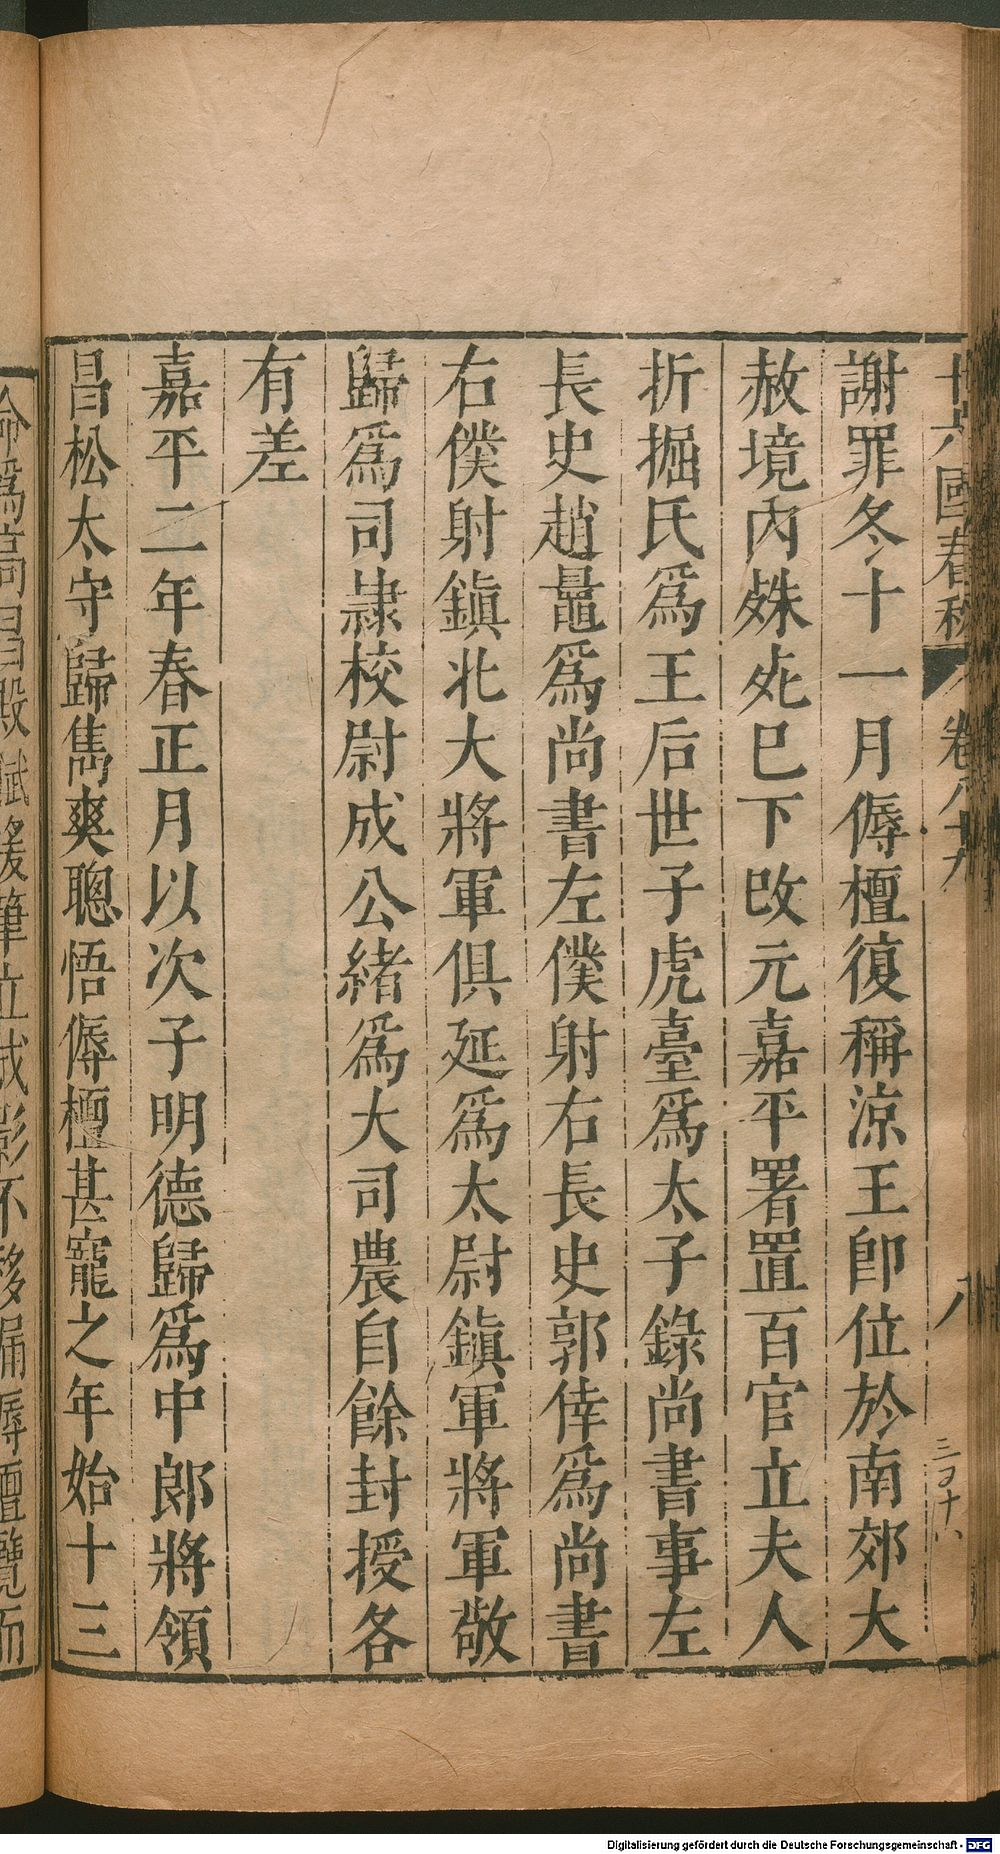 十六國春秋 卷八十九 八
謝罪冬十一月傉檀復稱涼王卽位於南郊大
赦境內殊死巳下改元嘉平署置百官立夫人
折掘氏爲王后世子虎臺爲太子錄尚書事左
長史趙鼂爲尚書左僕射右長史郭倖爲尚書
右僕射鎮北大將軍俱延爲太尉鎮軍將軍敬
歸爲司隷校尉成公緒爲大司農自餘封授各
有差
嘉平二年春正月以次子明德歸爲中郎將領
昌松太守歸雋爽聰悟傉檀甚寵之年始十三
命爲高昌殿賦援筆立成影不移漏傉檀覽而
Digitalisierung gefördert durch die Deutsche Forschungsgemeinschaft - DFG